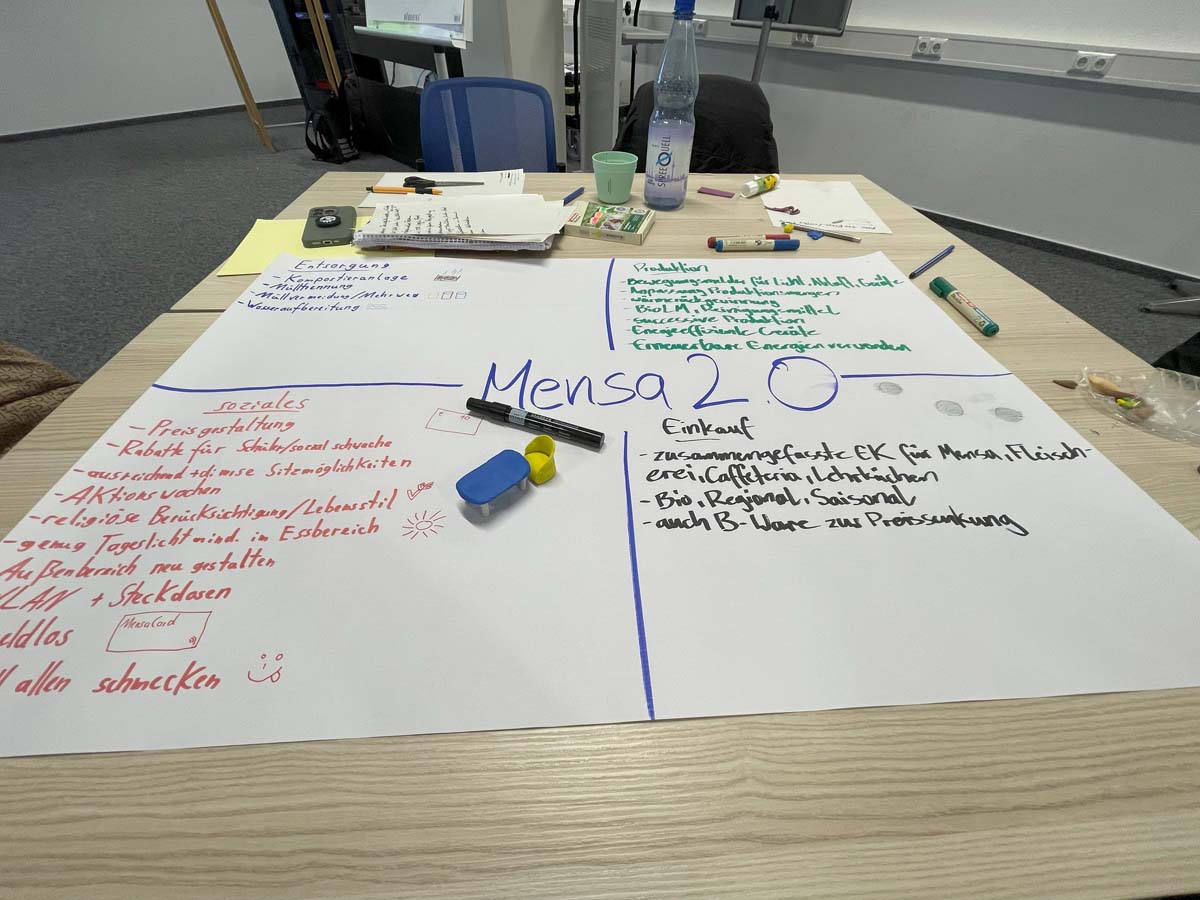 SPREEQUELL
Entsorgung
- Kompostieranlage
- Mülltrennung
- Müllvermeidung/Mehrweg
- Wasseraufbereitung
Produktion
- Bewegungsmelder für Licht, Abluft, Geräte
- Anpassung Produktionsmengen
- Wärmerückgewinnung
- Bio LM, Reinigungsmittel
- successive Produktion
- Energieeffiziente Geräte
- Erneuerbare Energien verwenden
Mensa 2.0
soziales
- Preisgestaltung
- Rabatte für Schüler/sozial schwache
- ausreichend + diverse Sitzmöglichkeiten
- AKtionswochen
- religiöse Berücksichtigung/Lebensstil
- genug Tageslicht mind. im Essbereich
Außenbereich neu gestalten
LAN + Steckdosen
eldlos
MensaCard
allen schmecken
Einkauf
- zusammengefasste EK für Mensa, Fleisch-
erei, Caffeteria, Lehrküchen
- Bio, Regional, Saisonal
- auch B-Ware zur Preissenkung